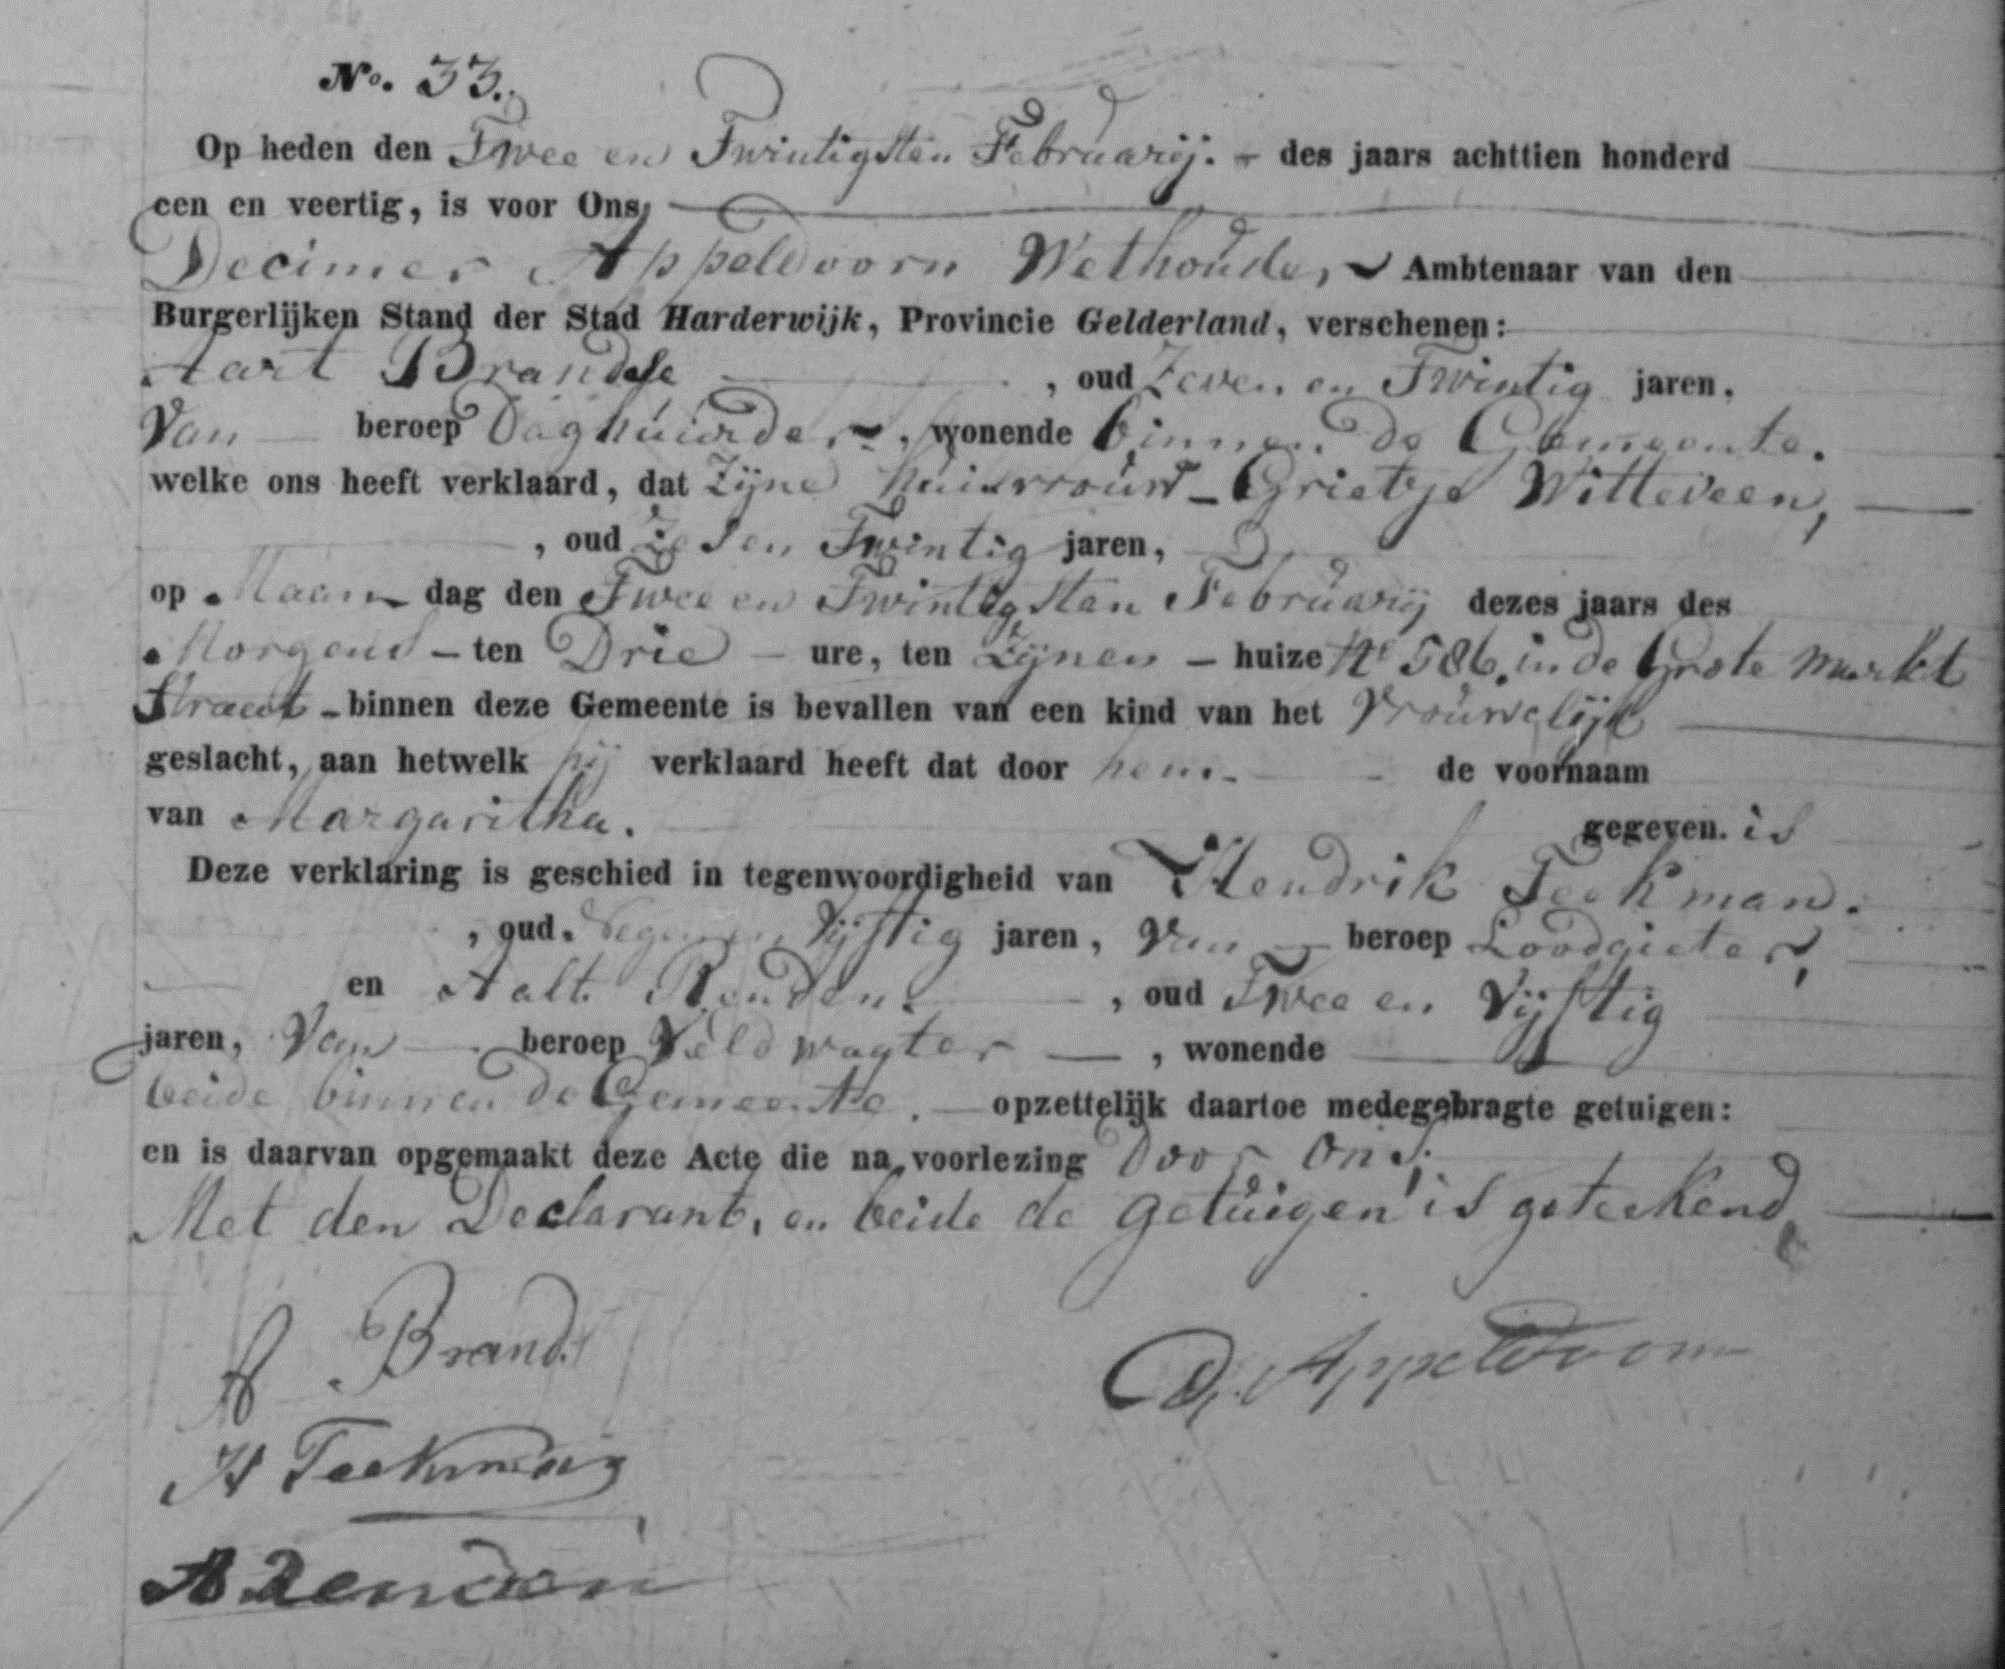 No. 33.
Op heden den Twee en Twintigsten Februarij. – des jaars achttien honderd
een en veertig, is voor Ons,
Decimer Appeldoorn Wethouder, Ambtenaar van den
Burgerlijken Stand der Stad Harderwijk, Provincie Gelderland, verschenen:
Aart Brandse , oud Zeven en Twintig jaren,
Van beroep Daghuurder, wonende binnen de Gemeente.
welke ons heeft verklaard, dat Zijne huisvrouw – Grietje Witteveen,
, oud Zes en Twintig jaren,
op Maan dag den Twee en Twintigsten Februarij dezes jaars des
Morgens – ten Drie – ure, ten Zijnen – huize No 586. in de Grote Markt
Straat – binnen deze Gemeente is bevallen van een kind van het Vrouwelijk
geslacht, aan hetwelk hij verklaard heeft dat door hem – de voornaam
van Margaritha. gegeven. is
Deze verklaring is geschied in tegenwoordigheid van Hendrik Teekman.
, oud Negen en Vijftig jaren, Van – beroep Loodgieter,
en Aalt Renden. , oud Twee en Vijftig
jaren, Van beroep Veldwagter – , wonende
beide binnen de Gemeente. – opzettelijk daartoe medegebragte getuigen:
en is daarvan opgemaakt deze Acte die na voorlezing Door Ons.
Met den Declarant, en beide de getuigen is geteekend
A Brands
D. Appeldoorn
H Teekman
A Renden